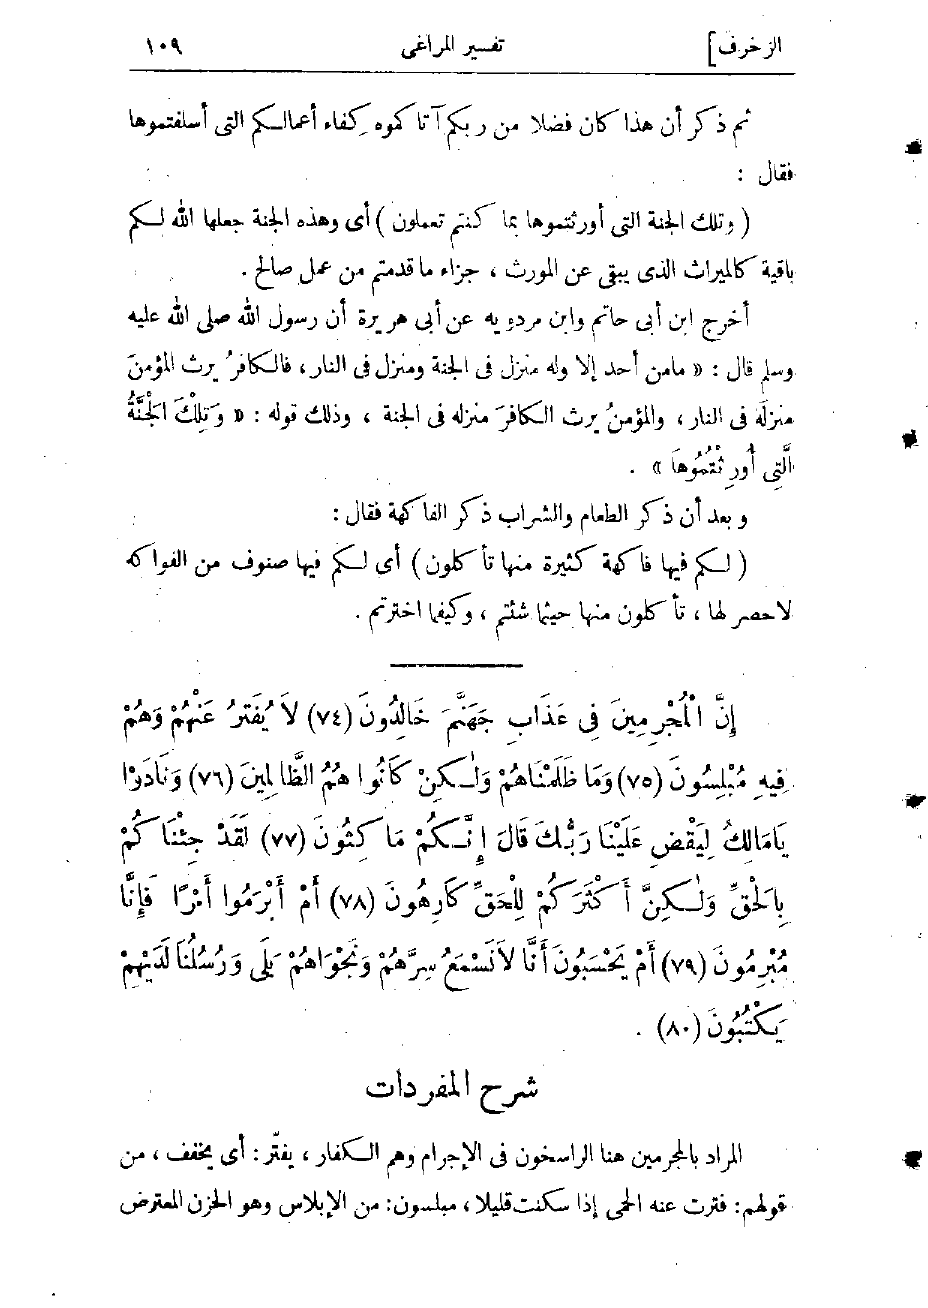 الزخرف] تفسير المراغى ١٠٩
ثم ذكر أن هذا كان فضلا من ربكم آتاكموه كِفاء أعمالكم التى أسلفتموها
فقال :
( وتلك الجنة التى أورثتموها بما كنتم تعملون ) أى وهذه الجنة جعلها الله لكم
باقية كالميراث الذى يبقى عن المورث ، جزاء ما قدمتم من عمل صالح .
أخرج ابن أبى حاتم وابن مردويه عن أبى هريرة أن رسول الله صلى الله عليه
وسلم قال : « مامن أحد إلا وله منزل فى الجنة ومنزل فى النار ، فالكافرُ يرث المؤمنَ
منزلَه فى النار ، والمؤمنُ يرث الكافرَ منزله فى الجنة ، وذلك قوله : « وَتِلْكَ الْجَنَّةُ
الَّتِى أُورِثْتُمُوهَا » .
وبعد أن ذكر الطعام والشراب ذكر الفاكهة فقال :
( لكم فيها فاكهة كثيرة منها تأكلون ) أى لكم فيها صنوف من الفواكه
لاحصر لها ، تأكلون منها حيثما شئتم ، وكيفما اخترتم .
إِنَّ الْمُجْرِمِينَ فِى عَذَابِ جَهَنَّمَ خَالِدُونَ (٧٤) لَا يُفَتَّرُ عَنْهُمْ وَهُمْ
فِيهِ مُبْلِسُونَ (٧٥) وَمَا ظَلَمْنَاهُمْ وَلٰكِنْ كَانُوا هُمُ الظَّالِمِينَ (٧٦) وَنَادَوْا
يَامَالِكُ لِيَقْضِ عَلَيْنَا رَبُّكَ قَالَ إِنَّكُمْ مَاكِثُونَ (٧٧) لَقَدْ جِئْنَاكُمْ
بِالْحَقِّ وَلٰكِنَّ أَكْثَرَكُمْ لِلْحَقِّ كَارِهُونَ (٧٨) أَمْ أَبْرَمُوا أَمْرًا فَإِنَّا
مُبْرِمُونَ (٧٩) أَمْ يَحْسَبُونَ أَنَّا لَا نَسْمَعُ سِرَّهُمْ وَنَجْوَاهُمْ بَلَى وَرُسُلُنَا لَدَيْهِمْ
يَكْتُبُونَ (٨٠) .
شرح المفردات
المراد بالمجرمين هنا الراسخون فى الإجرام وهم الكفار ، يفتّر : أى يخفف ، من
قولهم : فترت عنه الحمى إذا سكنت قليلا ، مبلسون : من الإبلاس وهو الحزن المعترض